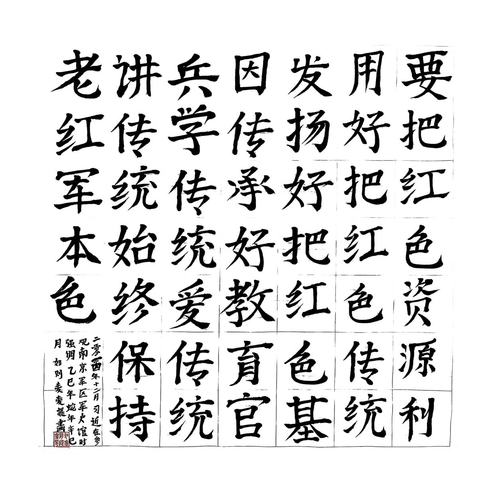 要把红色资源利
用好把红色传统
发扬好把红色基
因传承好教育官
兵学传统爱传统
讲传统始终保持
老红军本色
二零一四年十二月习近在参
观南京军区军史馆时
强调乙巳年蛇年辛巳
月